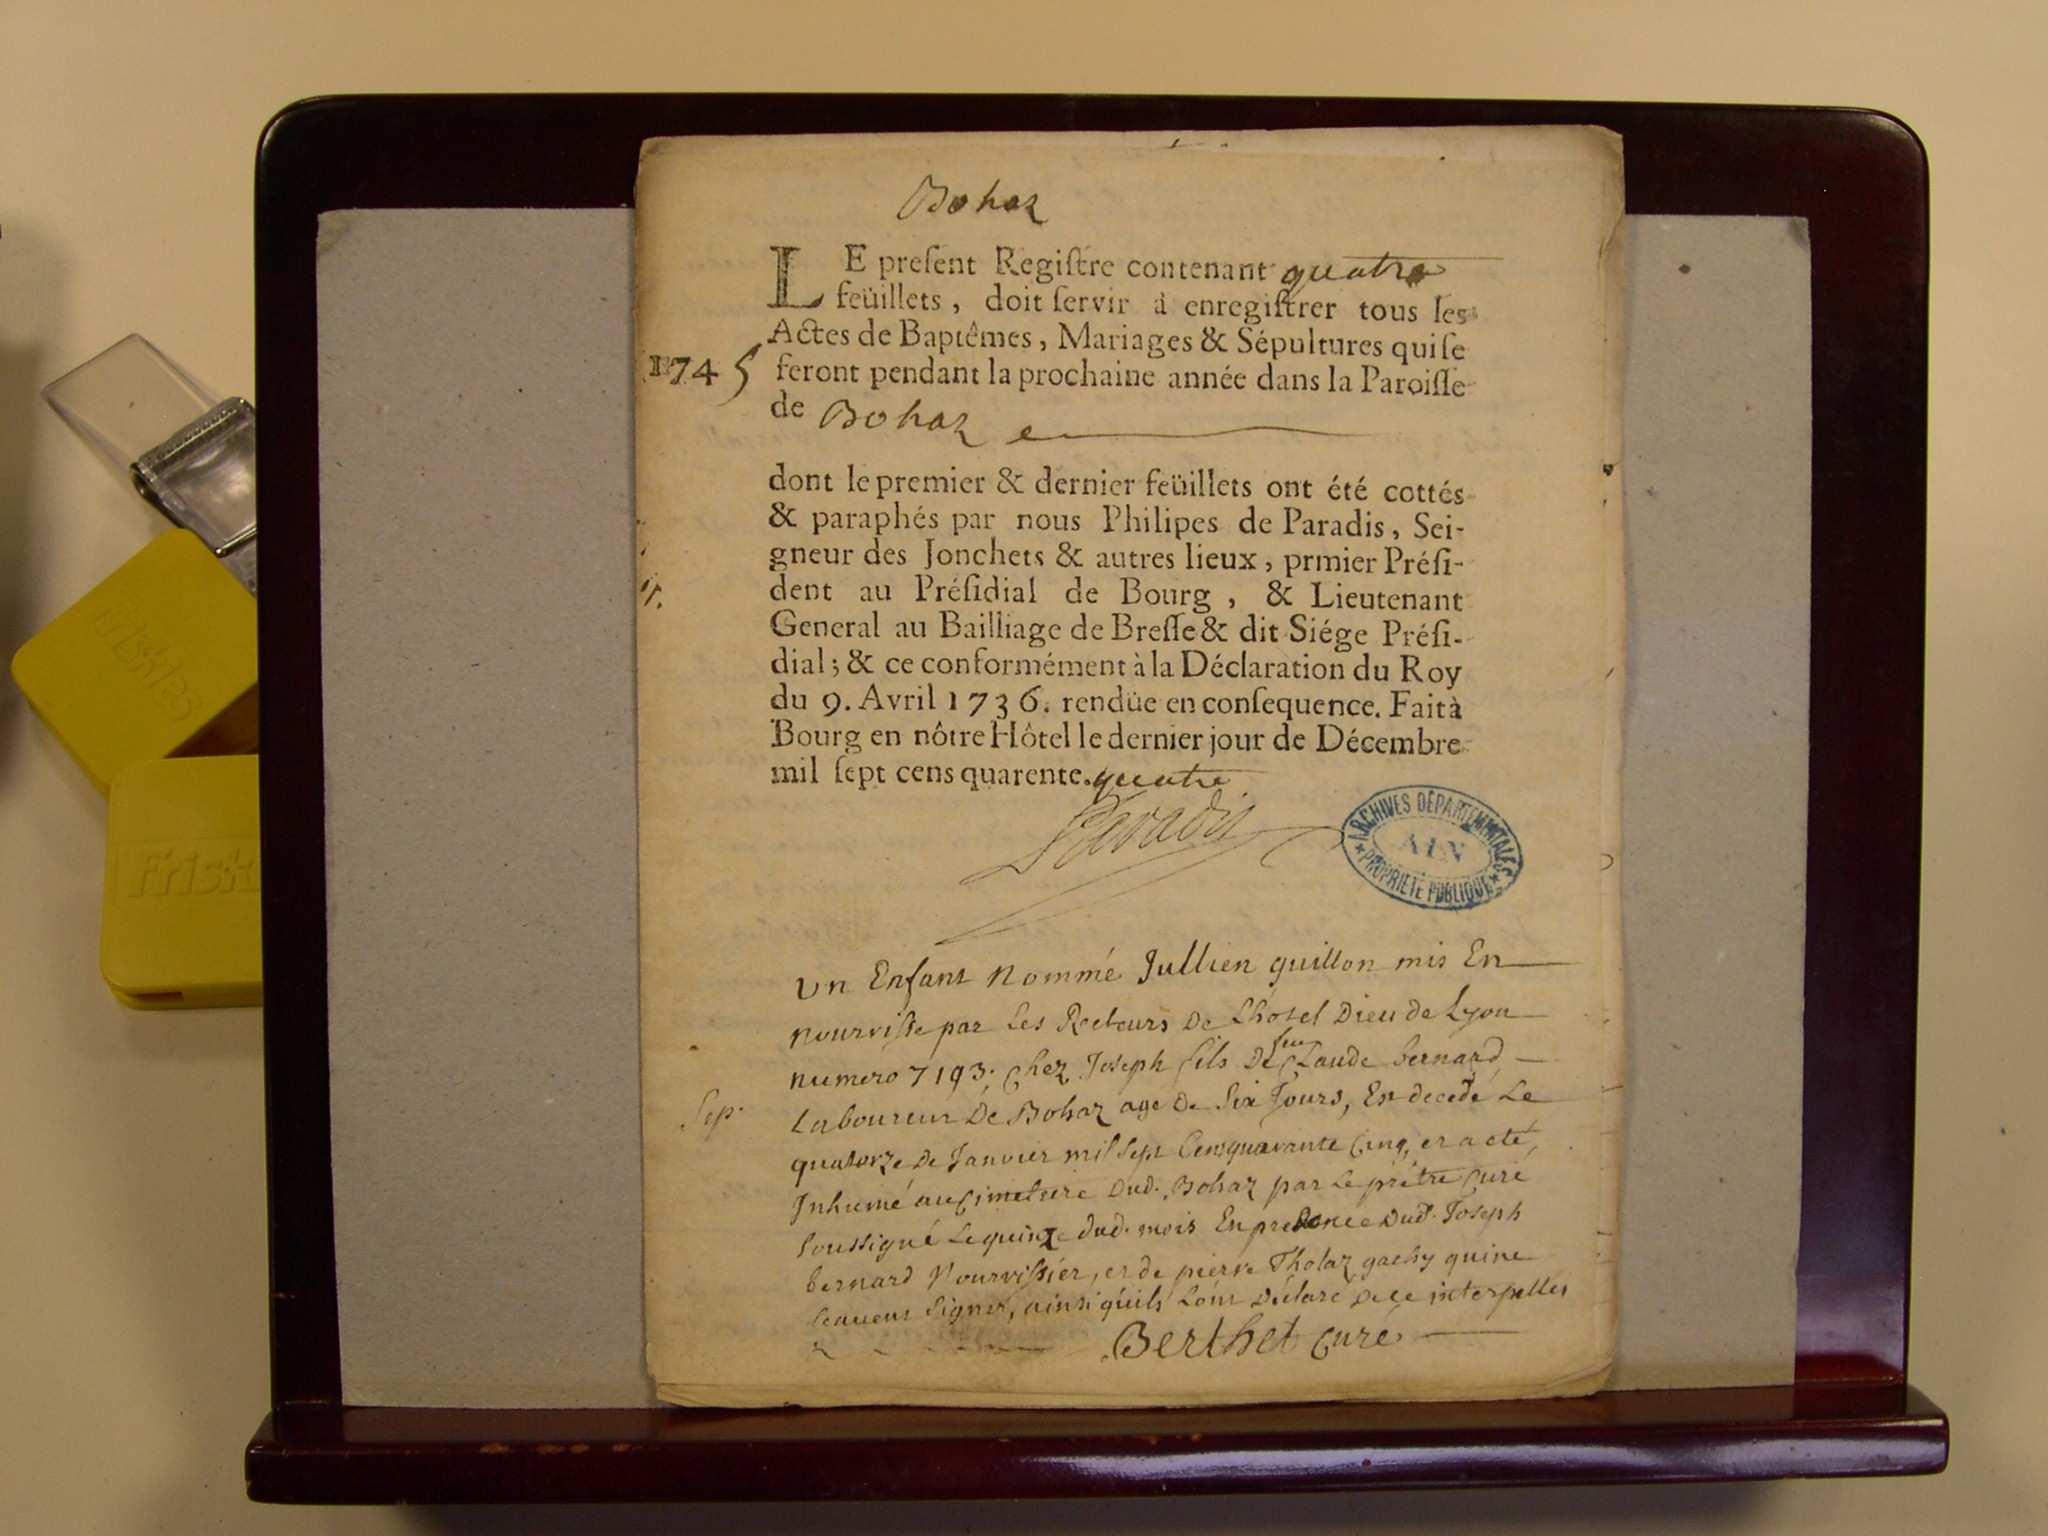 Bohaz
LE preſent Regiſtre contenant quatre
feüillets, doit ſervir à enregiſtrer tous les
Actes de Baptêmes, Mariages & Sépultures qui ſe
1745 feront pendant la prochaine année dans la Paroiſſe
de Bohaz
dont le premier & dernier feüillets ont été cottés
& paraphés par nous Philipes de Paradis, Sei-
gneur des Jonchets & autres lieux, prmier Préſi-
dent au Préſidial de Bourg, & Lieutenant
General au Bailliage de Breſſe & dit Siége Préſi-
dial; & ce conformément à la Déclaration du Roy
du 9. Avril 1736. rendüe en conſequence. Fait à
Bourg en nôtre Hôtel le dernier jour de Décembre
mil ſept cens quarente. quatre
Paradis
ARCHIVES DÉPARTEMENTALES
AIN
PROPRIÉTÉ PUBLIQUE
un Enfant nommé Jullien guillon mis En
nourrisse par Les Recteurs De Lhotel Dieu de Lyon
numero 7193. chez Joseph fils De feu Claude bernard
Sep. Laboureur De Bohaz age De Six Jours, Est decedé Le
quatorze De Janvier mil Sept Cens quarante Cinq, et a eté
Inhumé au Cimetiere Dud. Bohaz par Le prêtre Curé
soussigné Le quinze dud. mois En presence Dud. Joseph
bernard Nourrissier, et de pierre Tholaz gachy qui ne
scavent signer, ainsi quils Lont Déclaré De ce interpellés
Berthet Curé
Friskies
Frisk